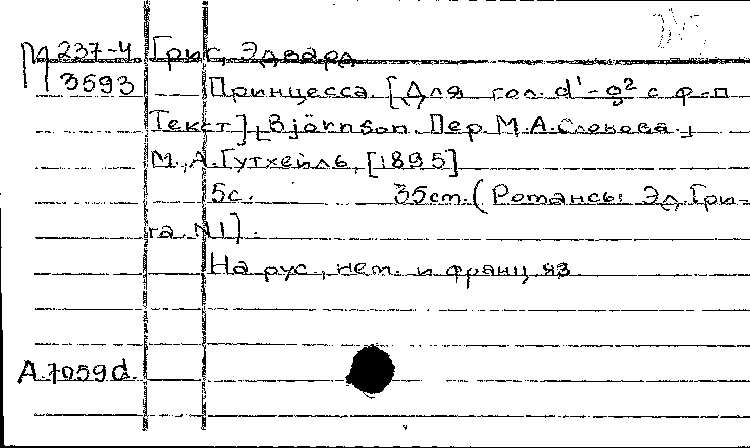 М 237-4 Григ, Эдвард
3593 Принцесса. [Для гол. d¹-g² с ф-п
Текст] Björnson. Пер. М.А.Слонова.,
М., А.Гутхейль, [1895]
5с. 35cm. (Романсы Эд.Гри-
га N1].
На рус., нем. и франц.яз.
A.7059d.